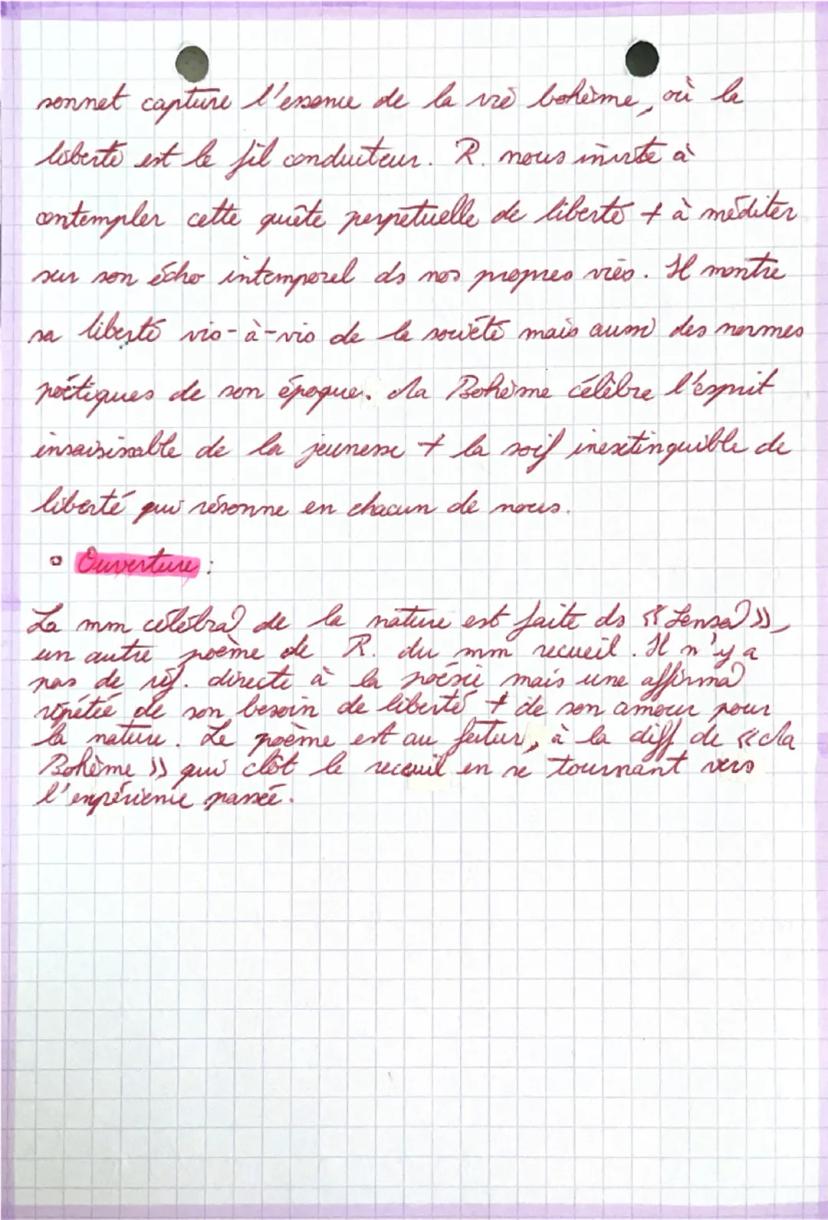 sonnet capture l'essence de la vie bohème, où la
liberté est le fil conducteur. R. nous invite à
contempler cette quête perpetuelle de liberté + à méditer
sur son écho intemporel ds nos propres vies. Il montre
sa liberté vis-à-vis de la société mais aussi des normes
poétiques de son époque. Ma Bohème célèbre l'esprit
insaisissable de la jeunesse + la soif inextinguible de
liberté qui résonne en chacun de nous.
▫ Ouverture :
La mm célébra⁾ de la nature est faite ds « Sensa⁾ »,
un autre poème de R. du mm recueil. Il n'y a
pas de réf. directe à la poésie mais une affirma⁾
répétée de son besoin de liberté + de son amour pour
la nature. Le poème est au futur, à la diff de « Ma
Bohème » qui clôt le recueil en se tournant vers
l'expérience passée.